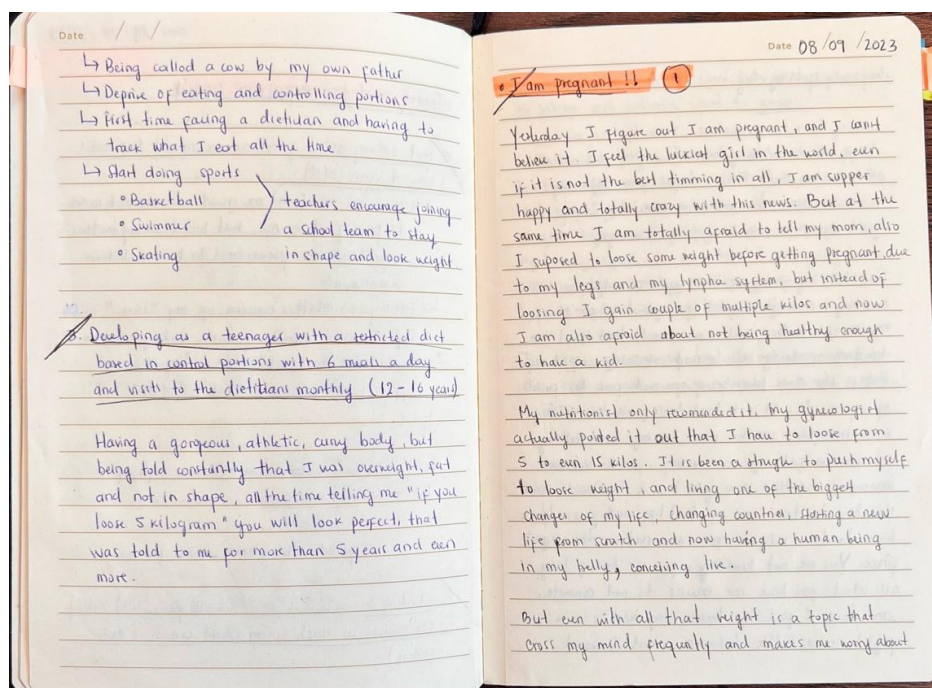 Date / /
↳ Being called a cow by my own father
↳ Deprive of eating and controlling portions
↳ First time facing a dietitian and having to
track what I eat all the time
↳ Start doing sports
° Basketball
° Swimmer
° Skating
teachers encourage joining
a school team to stay
in shape and look weight
3. Developing as a teenager with a restricted diet
based in control portions with 6 meals a day
and visits to the dietitians monthly (12-16 years)
Having a gorgeous, athletic, curvy body, but
being told constantly that I was overweight, fat
and not in shape, all the time telling me "if you
loose 5 kilogram" you will look perfect, that
was told to me for more than 5 years and even
more.
Date 08/09/2023
• I am pregnant !! 1
Yesterday I figure out I am pregnant, and I can't
believe it. I feel the luckiest girl in the world, even
if it is not the best timming in all, I am supper
happy and totally crazy with this news. But at the
same time I am totally afraid to tell my mom, also
I suposed to loose some weight before getting pregnant, due
to my legs and my lympha system, but instead of
loosing I gain couple of multiple kilos and now
I am also afraid about not being healthy enough
to have a kid.
My nutritionist only recomended it, my gynecologist
actually poited it out that I have to loose from
5 to even 15 kilos. It is been a strugle to push myself
to loose weight, and living one of the biggest
changes of my life, changing countries, starting a new
life from scratch and now having a human being
in my belly, conceiving live.
But even with all that weight is a topic that
cross my mind frequently and makes me worry about